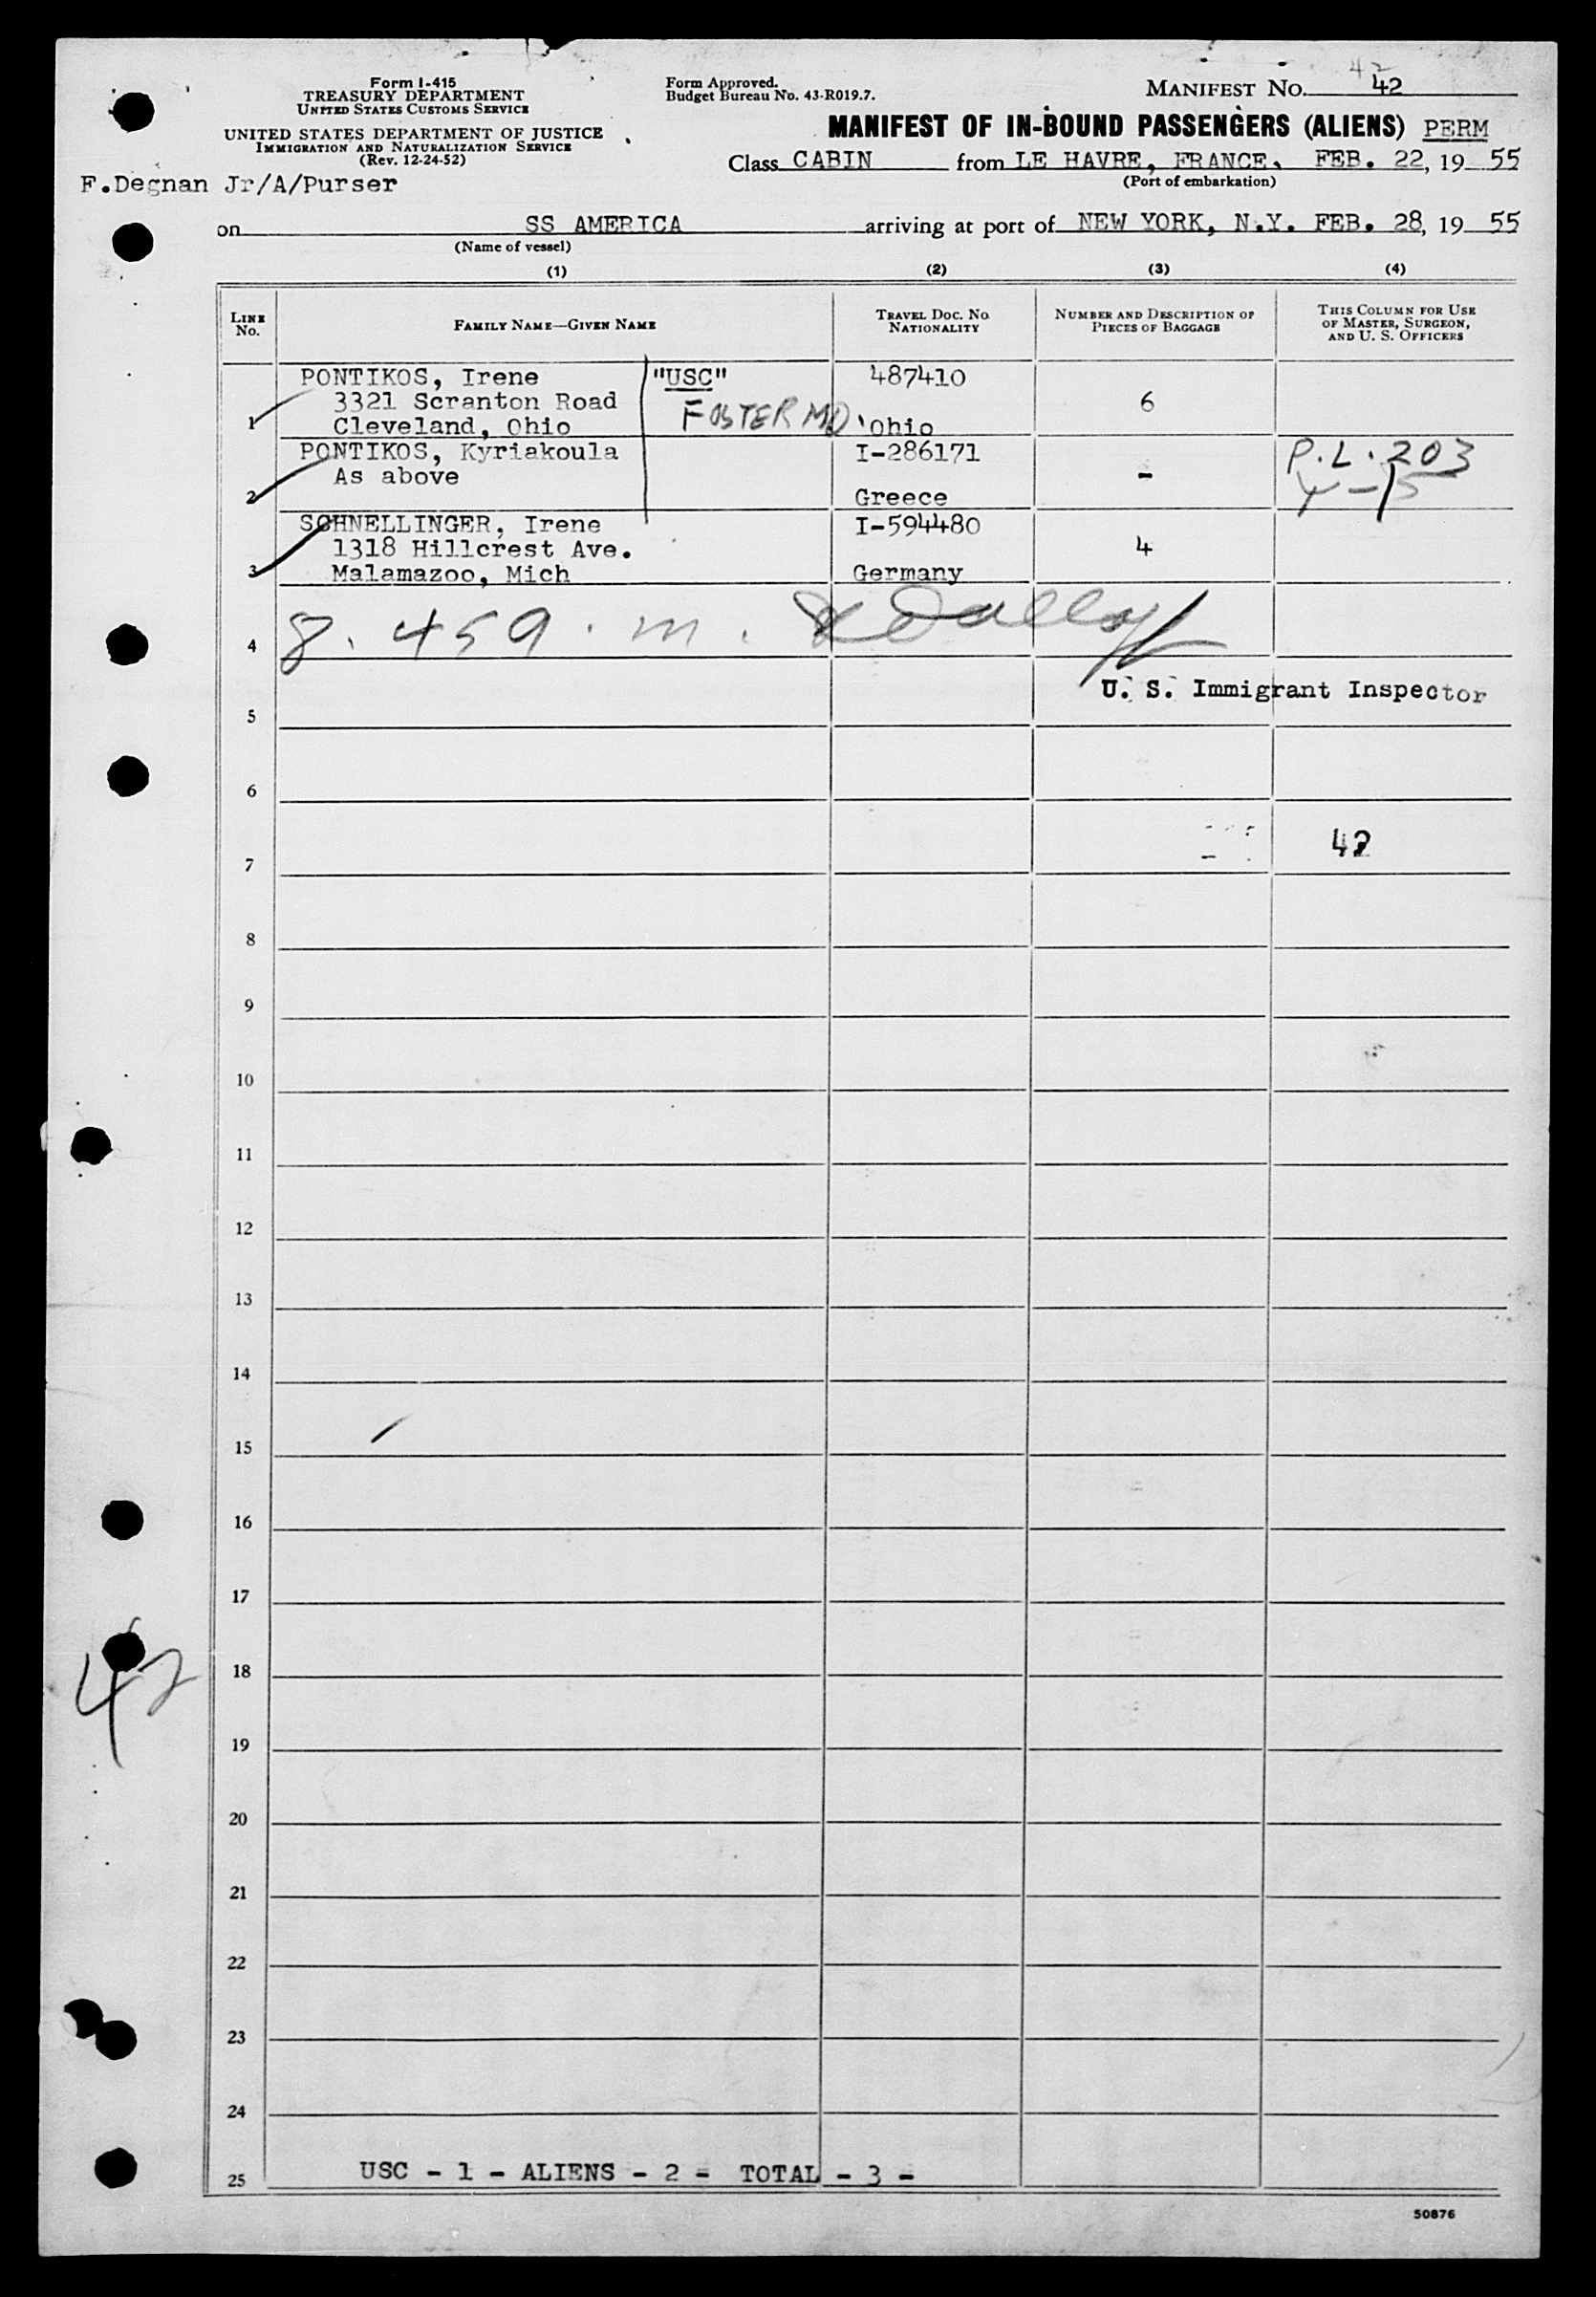 Form I-415
TREASURY DEPARTMENT
UNITED STATES CUSTOMS SERVICE
UNITED STATES DEPARTMENT OF JUSTICE
IMMIGRATION AND NATURALIZATION SERVICE
(Rev. 12-24-52)
Form Approved.
Budget Bureau No. 43-R019.7.
42
MANIFEST NO. 42
MANIFEST OF IN-BOUND PASSENGERS (ALIENS) PERM
Class CABIN from LE HAVRE, FRANCE, FEB. 22, 19 55
(Port of embarkation)
F.Degnan Jr/A/Purser
on SS AMERICA arriving at port of NEW YORK, N.Y. FEB. 28, 19 55
(Name of vessel)
(1) (2) (3) (4)
LINE No.
FAMILY NAME—GIVEN NAME
TRAVEL DOC. NO.
NATIONALITY
NUMBER AND DESCRIPTION OF
PIECES OF BAGGAGE
THIS COLUMN FOR USE
OF MASTER, SURGEON,
AND U. S. OFFICERS
PONTIKOS, Irene "USC" 487410
3321 Scranton Road FOSTER MD 6
1 Cleveland, Ohio Ohio
PONTIKOS, Kyriakoula I-286171 P.L. 203
As above -
2 Greece
SCHNELLINGER, Irene I-594480
1318 Hillcrest Ave. 4
3 Malamazoo, Mich Germany
4
U. S. Immigrant Inspector
5
6
7 42
8
9
10
11
12
13
14
15
16
17
42
18
19
20
21
22
23
24
25 USC - 1 - ALIENS - 2 - TOTAL - 3 -
50876